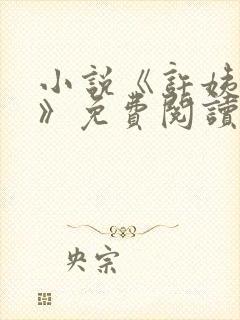 小說《許姨
》免費閱讀
央宗